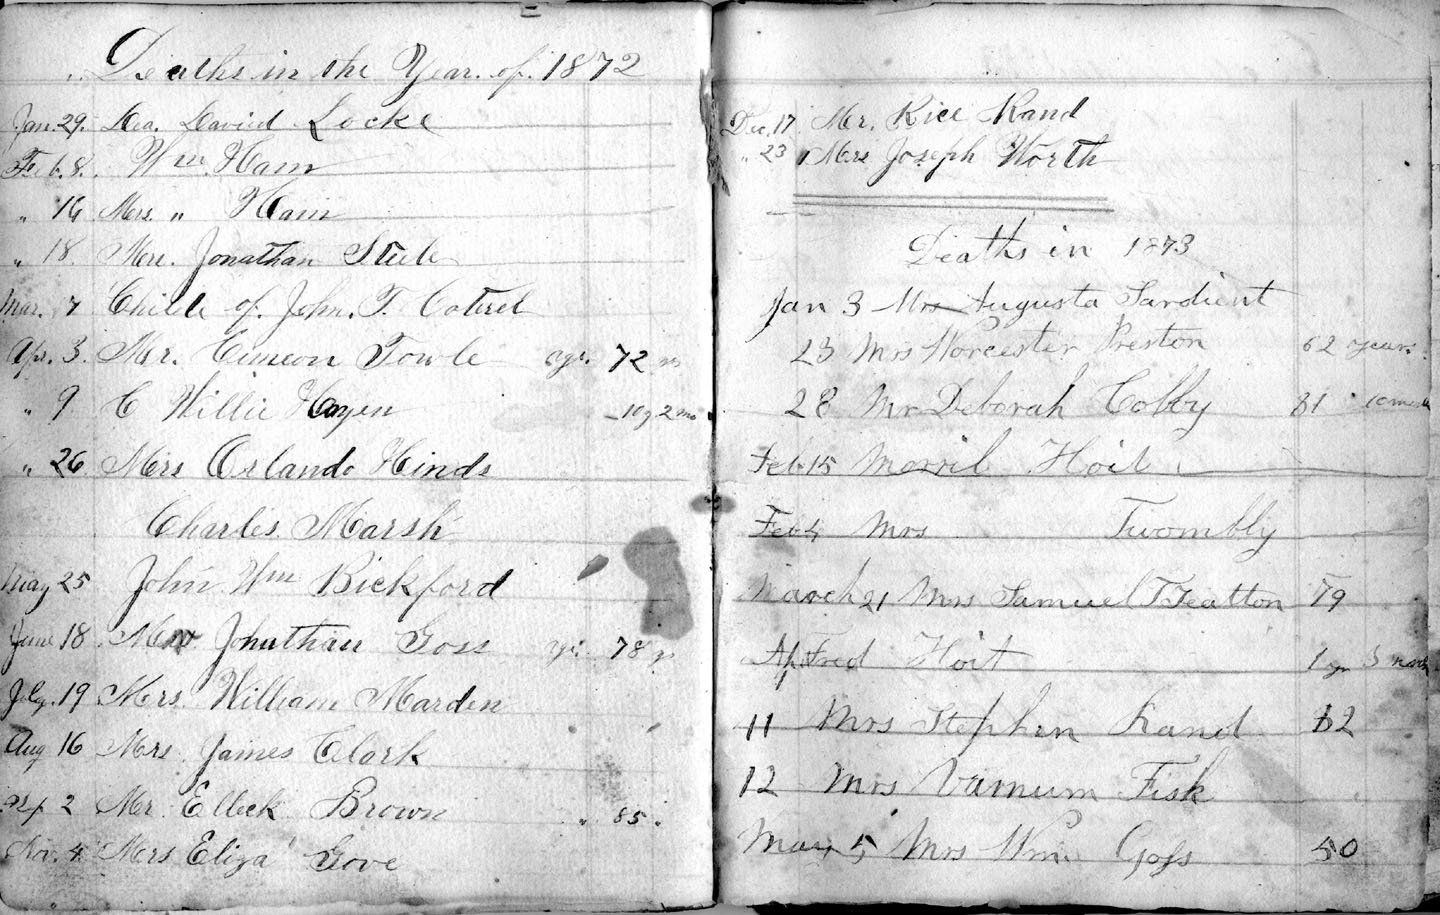 Deaths in the Year of 1872
Jan. 29. Dea. David Locke
Feb. 8. Wm. Ham
" 16 Mrs. " Ham
" 18. Mrs. Jonathan Steele
Mar. 7 Child of John. T. Cotrel
Apr. 3. Mr. Cimeon Towle age. 72 ys
" 9 C Willie Hayen 10 y 2 mo
" 26. Mrs Orlando Hinds
Charles Marsh
May 25 John Wm Bickford
June 18. Jonathan Goss 78 y
July. 19 Mrs. William Marden
Aug 16 Mrs. James Clark
Sep 2 Mr. Elleck Brown " 85.
Nov. 4 Mrs Eliza Gove
Dec. 17 Mr. Rice Rand
" 23 Mrs Joseph Worth
Deaths in 1873
Jan 3 Mrs Augusta Sardient
23 Mrs Worcester Preston 62 years
28 Mr Deborah Colby 81 10 month
Feb 15 Morril Hoit
Feb 4 Mrs Twombly
March 21 Mrs Samuel 79
Ap Fred Hoit 1 yr 3 month
11 Mrs Stephen Rand 62
12 Mrs Varnum Fisk
May 5 Mrs Wm. Goss 50